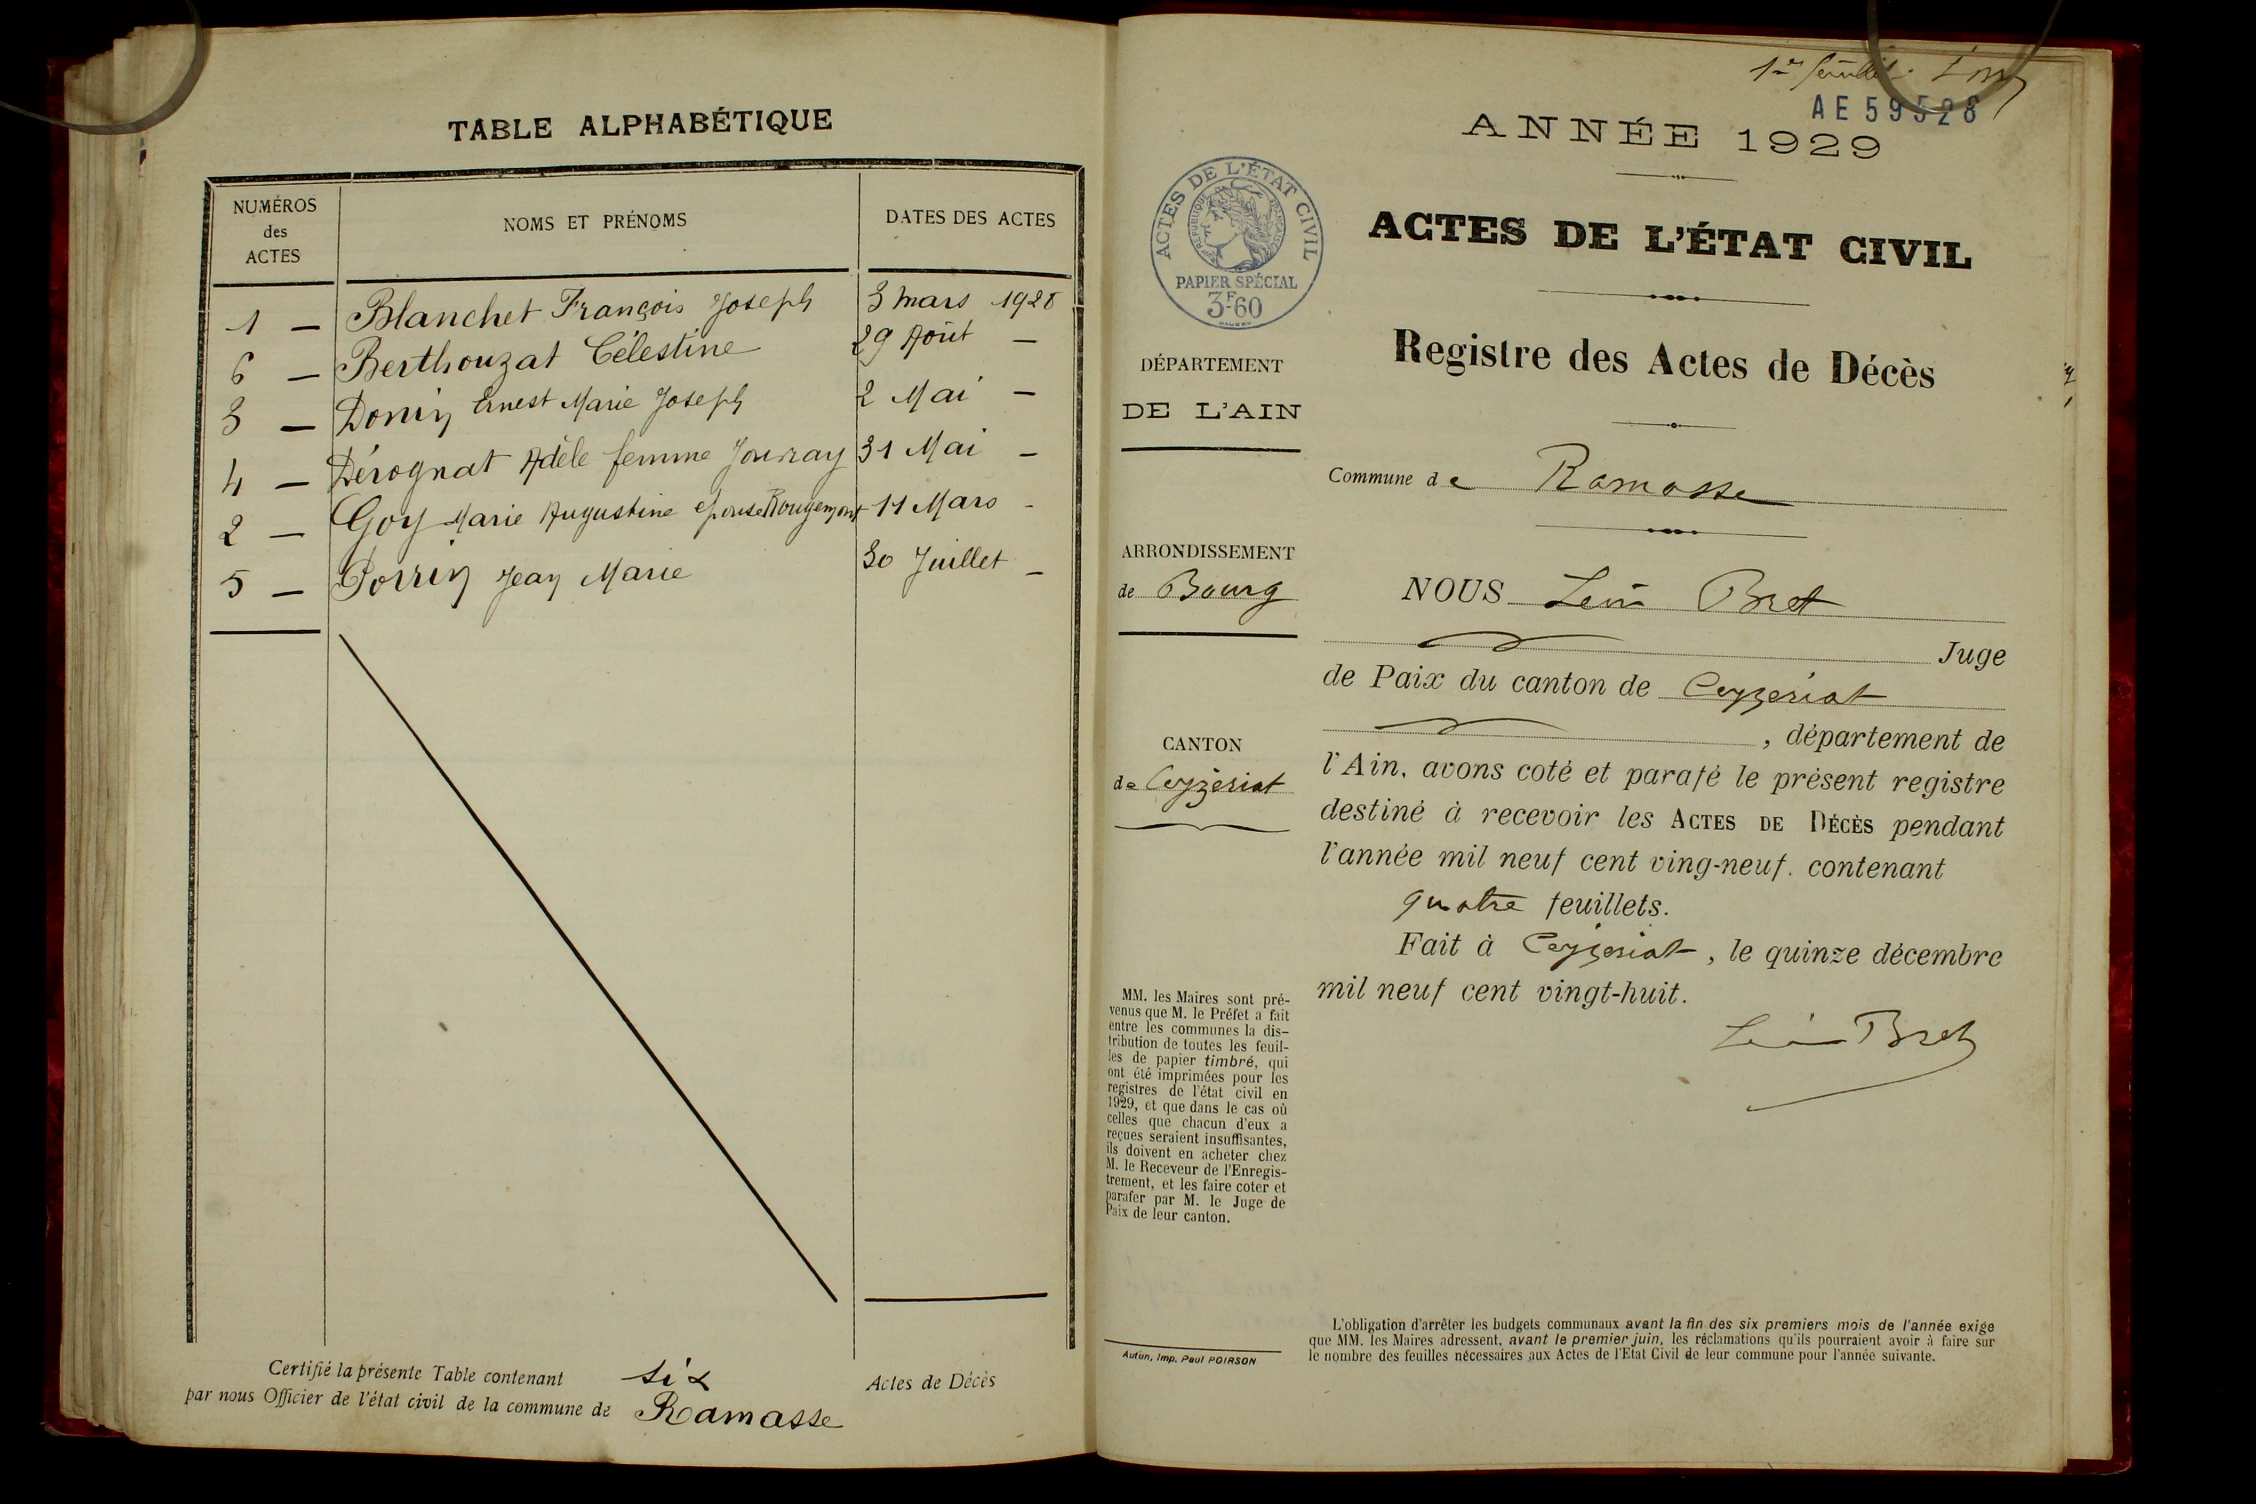 TABLE ALPHABÉTIQUE
NUMÉROS
des
ACTES
NOMS ET PRÉNOMS
DATES DES ACTES
1 — Blanchet François Joseph 3 mars 1928
6 — Berthouzat Célestine 29 Août —
3 — Donin Ernest Marie Joseph 2 Mai —
4 — Dérognat Adèle femme Journay 31 Mai —
2 — Goy Marie Augustine épouse Rougemont 11 Mars -
5 — Porrin Jean Marie 30 Juillet —
Certifié la présente Table contenant six Actes de Décès
par nous Officier de l'état civil de la commune de Ramasse
1er feuillet.
AE 59528
ANNÉE 1929
ACTES DE L'ÉTAT CIVIL
RÉPUBLIQUE FRANÇAISE
PAPIER SPÉCIAL
3F60
DÉPARTEMENT
DE L'AIN
ARRONDISSEMENT
de Bourg
CANTON
de Ceyzériat
MM. les Maires sont pré-
venus que M. le Préfet a fait
entre les communes la dis-
tribution de toutes les feuil-
les de papier timbré, qui
ont été imprimées pour les
registres de l'état civil en
1929, et que dans le cas où
celles que chacun d'eux a
reçues seraient insuffisantes,
ils doivent en acheter chez
M. le Receveur de l'Enregis-
trement, et les faire coter et
parafer par M. le Juge de
Paix de leur canton.
Autun, Imp. Paul POIRSON
ACTES DE L'ÉTAT CIVIL
Registre des Actes de Décès
Commune de Ramasse
NOUS Léon Bret
Juge
de Paix du canton de Ceyzeriat
, département de
l'Ain, avons coté et parafé le présent registre
destiné à recevoir les ACTES DE DÉCÈS pendant
l'année mil neuf cent ving-neuf. contenant
quatre feuillets.
Fait à Ceyzeriat, le quinze décembre
mil neuf cent vingt-huit.
Léon Bret
L'obligation d'arrêter les budgets communaux avant la fin des six premiers mois de l'année exige
que MM. les Maires adressent, avant le premier juin, les réclamations qu'ils pourraient avoir à faire sur
le nombre des feuilles nécessaires aux Actes de l'Etat Civil de leur commune pour l'année suivante.